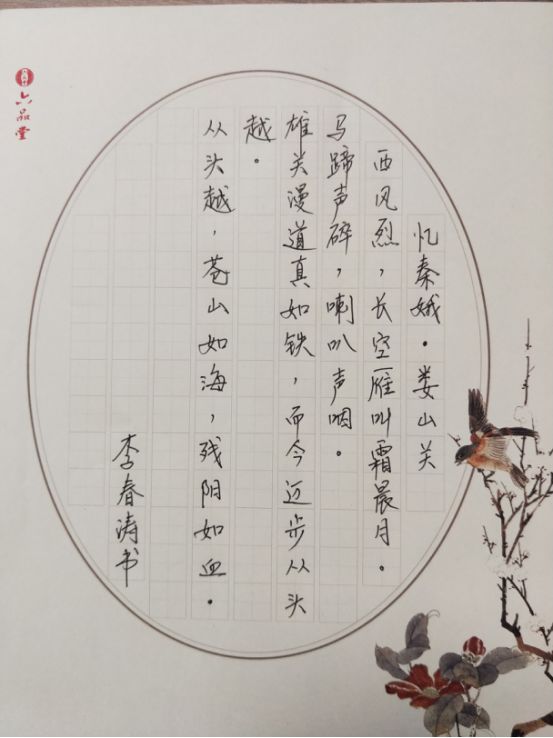 忆秦娥·娄山关
西风烈，长空雁叫霜晨月。
马蹄声碎，喇叭声咽。
雄关漫道真如铁，而今迈步从头
越。
从头越，苍山如海，残阳如血。
李春涛书
六品堂